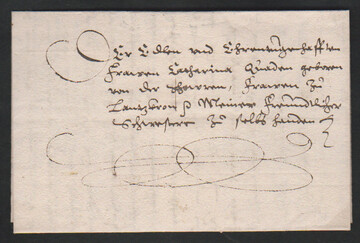 Der Edlen vnd Ehrentugenhafften
Frawen Catharina Quaden geboren
von der Horren, Frawen zu
Lantzkron p Meiner freundtlicher
Schwester zu selbs handen